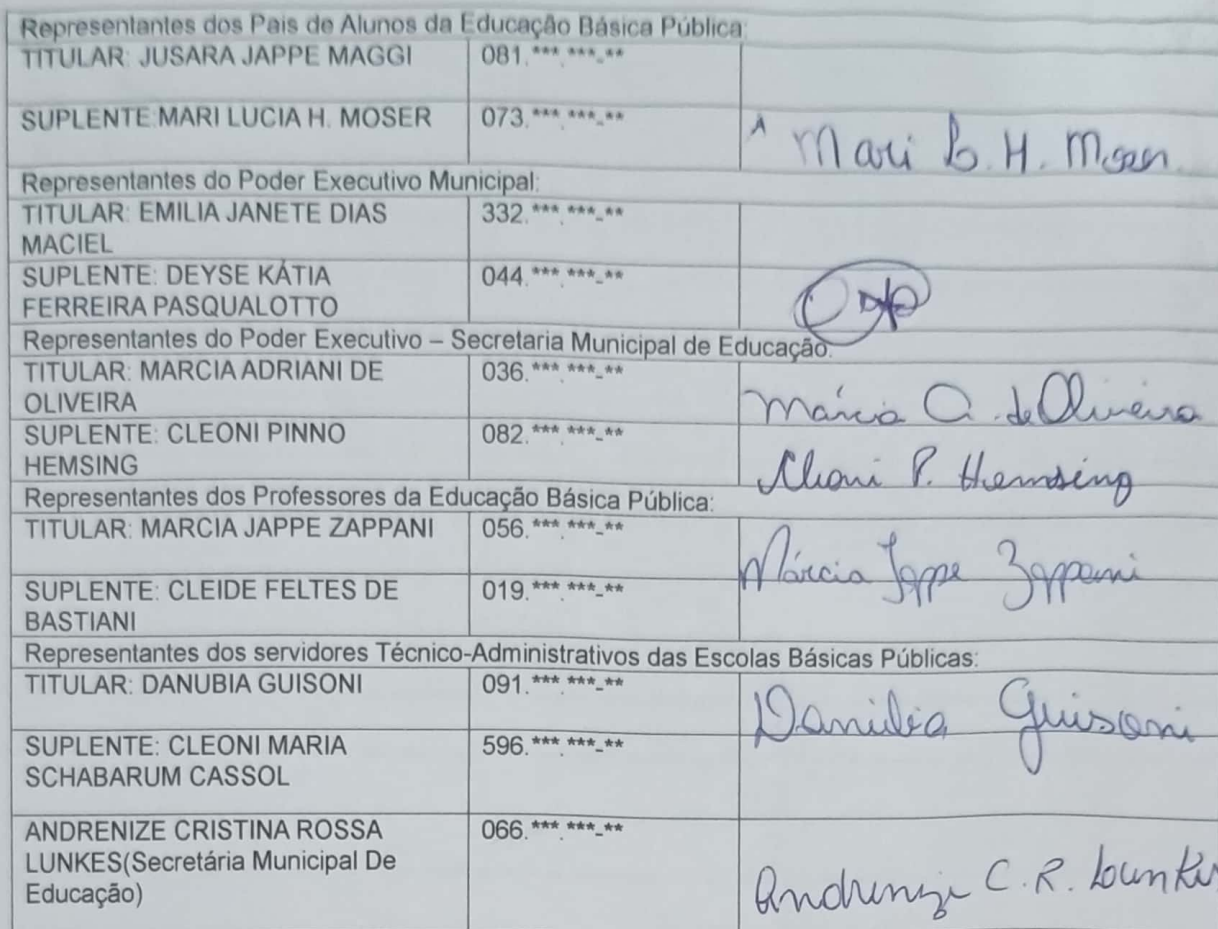 Representantes dos Pais de Alunos da Educação Básica Pública:
TITULAR: JUSARA JAPPE MAGGI 081.***.***-**
SUPLENTE:MARI LUCIA H. MOSER 073.***.***-**
Mari L. H. Moser
Representantes do Poder Executivo Municipal:
TITULAR: EMILIA JANETE DIAS 332.***.***-**
MACIEL
SUPLENTE: DEYSE KÁTIA 044.***.***-**
FERREIRA PASQUALOTTO
Representantes do Poder Executivo – Secretaria Municipal de Educação:
TITULAR: MARCIA ADRIANI DE 036.***.***-**
OLIVEIRA
Márcia A. de Oliveira
SUPLENTE: CLEONI PINNO 082.***.***-**
HEMSING
Cleoni P. Hemsing
Representantes dos Professores da Educação Básica Pública:
TITULAR: MARCIA JAPPE ZAPPANI 056.***.***-**
Márcia Jappe Zappani
SUPLENTE: CLEIDE FELTES DE 019.***.***-**
BASTIANI
Representantes dos servidores Técnico-Administrativos das Escolas Básicas Públicas:
TITULAR: DANUBIA GUISONI 091.***.***-**
Danubia Guisoni
SUPLENTE: CLEONI MARIA 596.***.***-**
SCHABARUM CASSOL
ANDRENIZE CRISTINA ROSSA 066.***.***-**
LUNKES(Secretária Municipal De
Educação)
Andrenize C. R. Lunkes